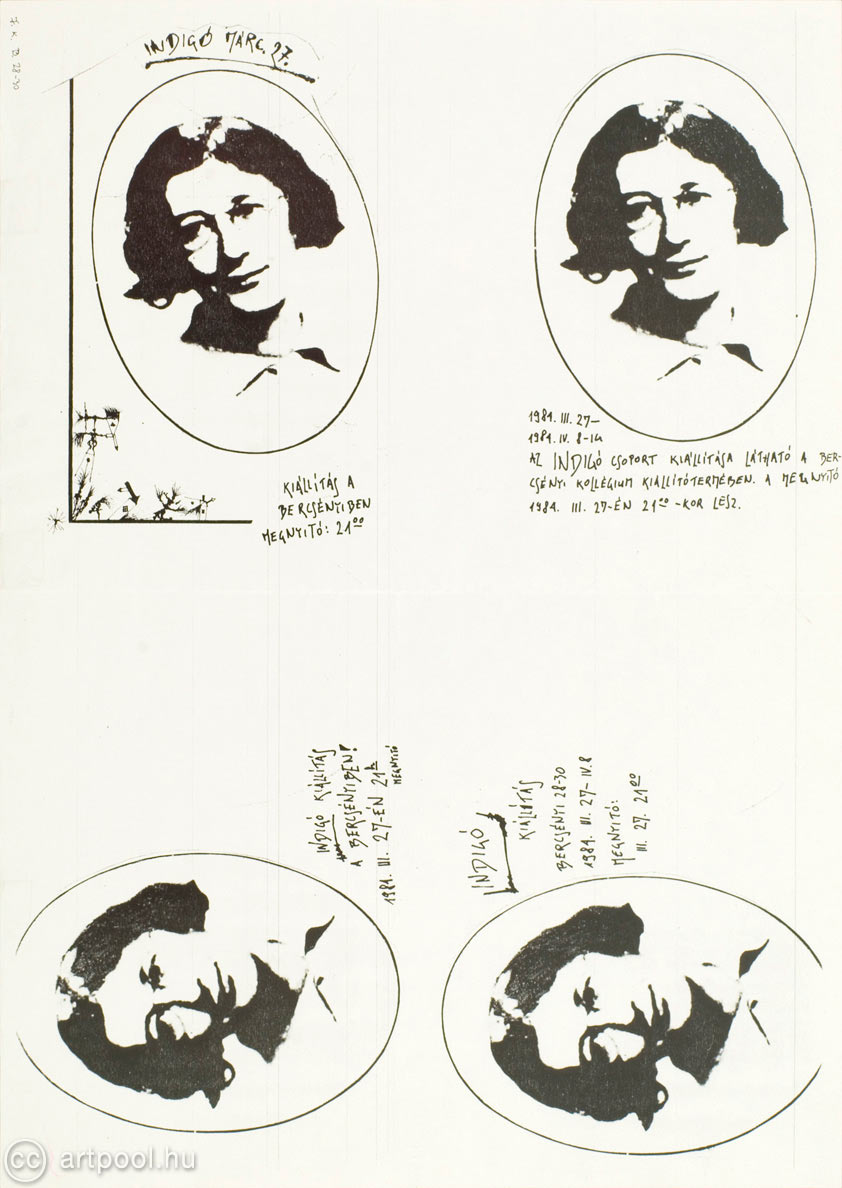 INDIGÓ MÁRC. 27.
KIÁLLÍTÁS A
BERCSÉNYIBEN
MEGNYITÓ: 21⁰⁰
1981. III. 27–
1981. IV. 8-IG
AZ INDIGÓ CSOPORT KIÁLLÍTÁSA LÁTHATÓ A BER-
CSÉNYI KOLLÉGIUM KIÁLLÍTÓTERMÉBEN. A MEGNYITÓ
1981. III. 27-ÉN 21⁰⁰-KOR LESZ.
INDIGÓ KIÁLLÍTÁS
A BERCSÉNYIBEN!
1981. III. 27-ÉN 21ʰ
MEGNYITÓ
INDIGÓ
KIÁLLÍTÁS
BERCSÉNYI 28-30
1981. III. 27-IV. 8
MEGNYITÓ:
III. 27. 21⁰⁰
28-30
cc artpool.hu